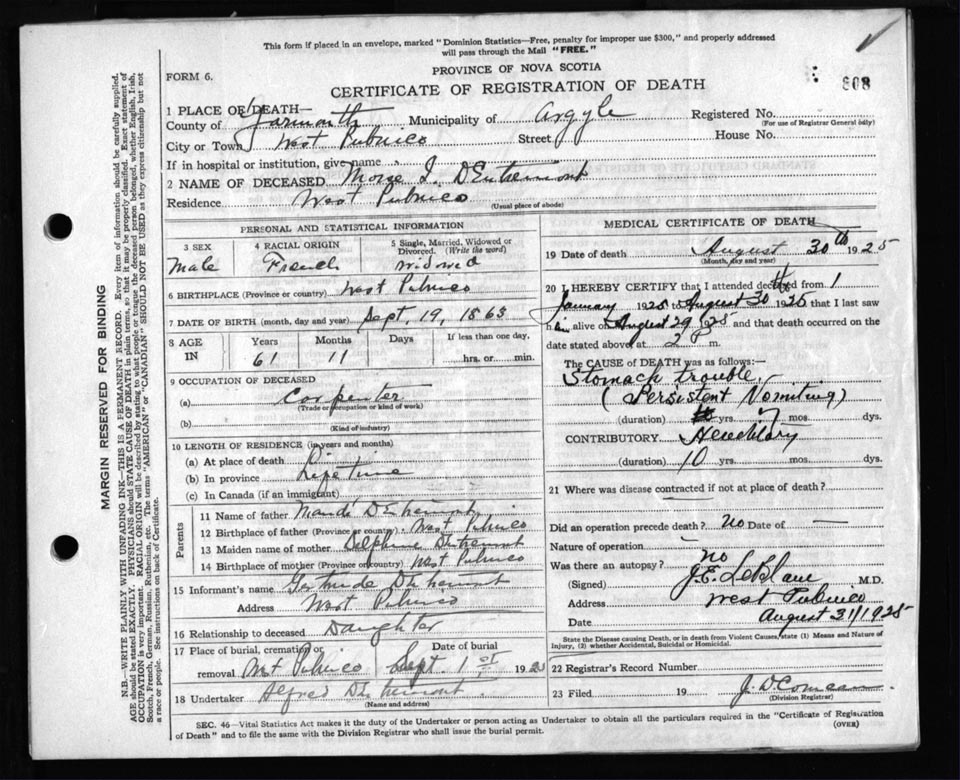 This form if placed in an envelope, marked "Dominion Statistics—Free, penalty for improper use $300," and properly addressed
will pass through the Mail "FREE."
FORM 6.
PROVINCE OF NOVA SCOTIA
808
CERTIFICATE OF REGISTRATION OF DEATH
1 PLACE OF DEATH—
County of Yarmouth Municipality of Argyle Registered No.
(For use of Registrar General only)
City or Town West Pubnico Street House No.
If in hospital or institution, give name
2 NAME OF DECEASED Morse I. DEntremont
Residence West Pubnico
(Usual place of abode)
PERSONAL AND STATISTICAL INFORMATION
3 SEX 4 RACIAL ORIGIN 5 Single, Married, Widowed or
Divorced. (Write the word)
Male French Widowed
6 BIRTHPLACE (Province or country) West Pubnico
7 DATE OF BIRTH (month, day and year) Sept. 19, 1863
8 AGE IN Years Months Days If less than one day,
61 11 hrs. or min.
9 OCCUPATION OF DECEASED
(a) Carpenter
(Trade or occupation or kind of work)
(b)
(Kind of industry)
10 LENGTH OF RESIDENCE (in years and months)
(a) At place of death
(b) In province Life time
(c) In Canada (if an immigrant)
Parents
11 Name of father Mandé DEntremont
12 Birthplace of father (Province or country) West Pubnico
13 Maiden name of mother Delphine DEntremont
14 Birthplace of mother (Province or country) West Pubnico
15 Informant's name Gertrude DEntremont
Address West Pubnico
16 Relationship to deceased Daughter
17 Place of burial, cremation or removal Date of burial
West Pubnico Sept 1st 1925
18 Undertaker Alfred DEntremont
(Name and address)
MEDICAL CERTIFICATE OF DEATH
19 Date of death August 30th 1925
(Month, day and year)
20 I HEREBY CERTIFY that I attended deceased from 1
January 1925 to August 30th 1925 that I last saw
him alive on August 29 1925 and that death occurred on
date stated above, at 2 P m.
The CAUSE of DEATH was as follows:—
Stomach trouble.
(Persistent Vomiting)
(duration) yrs. 7 mos. dys.
CONTRIBUTORY Hereditary
(duration) 10 yrs. mos. dys.
21 Where was disease contracted if not at place of death?
Did an operation precede death? No Date of —
Nature of operation
Was there an autopsy? no
(Signed) J.E. LeBlanc M.D.
Address West Pubnico
Date August 31/1925
State the Disease causing Death, or in death from Violent Causes, state (1) Means and Nature of
Injury, (2) whether Accidental, Suicidal or Homicidal.
22 Registrar's Record Number
23 Filed 19 J. D Comeau
(Division Registrar)
SEC. 46—Vital Statistics Act makes it the duty of the Undertaker or person acting as Undertaker to obtain all the particulars required in the "Certificate of Registration
of Death" and to file the same with the Division Registrar who shall issue the burial permit.
(OVER)
MARGIN RESERVED FOR BINDING
N.B.—WRITE PLAINLY WITH UNFADING INK—THIS IS A PERMANENT RECORD. Every item of information should be carefully supplied.
AGE should be stated EXACTLY. PHYSICIANS should STATE CAUSE OF DEATH in plain terms, so that it may be properly classified. Exact statement of
OCCUPATION is very important. RACIAL ORIGIN will be described by stating to what people or tongue the deceased person belonged, whether English, Irish,
Scotch, French, German, Russian, Ruthenian, etc. The terms "AMERICAN" or "CANADIAN" SHOULD NOT BE USED as they express citizenship but not
a race or people. See instructions on back of Certificate.